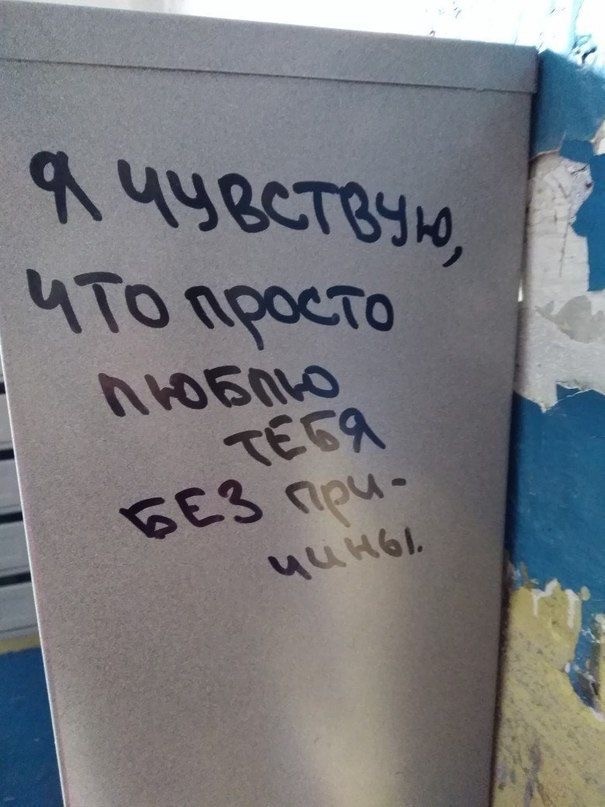 Я ЧУВСТВУЮ,
ЧТО ПРОСТО
ЛЮБЛЮ
ТЕБЯ
БЕЗ ПРИ-
ЧИНЫ.